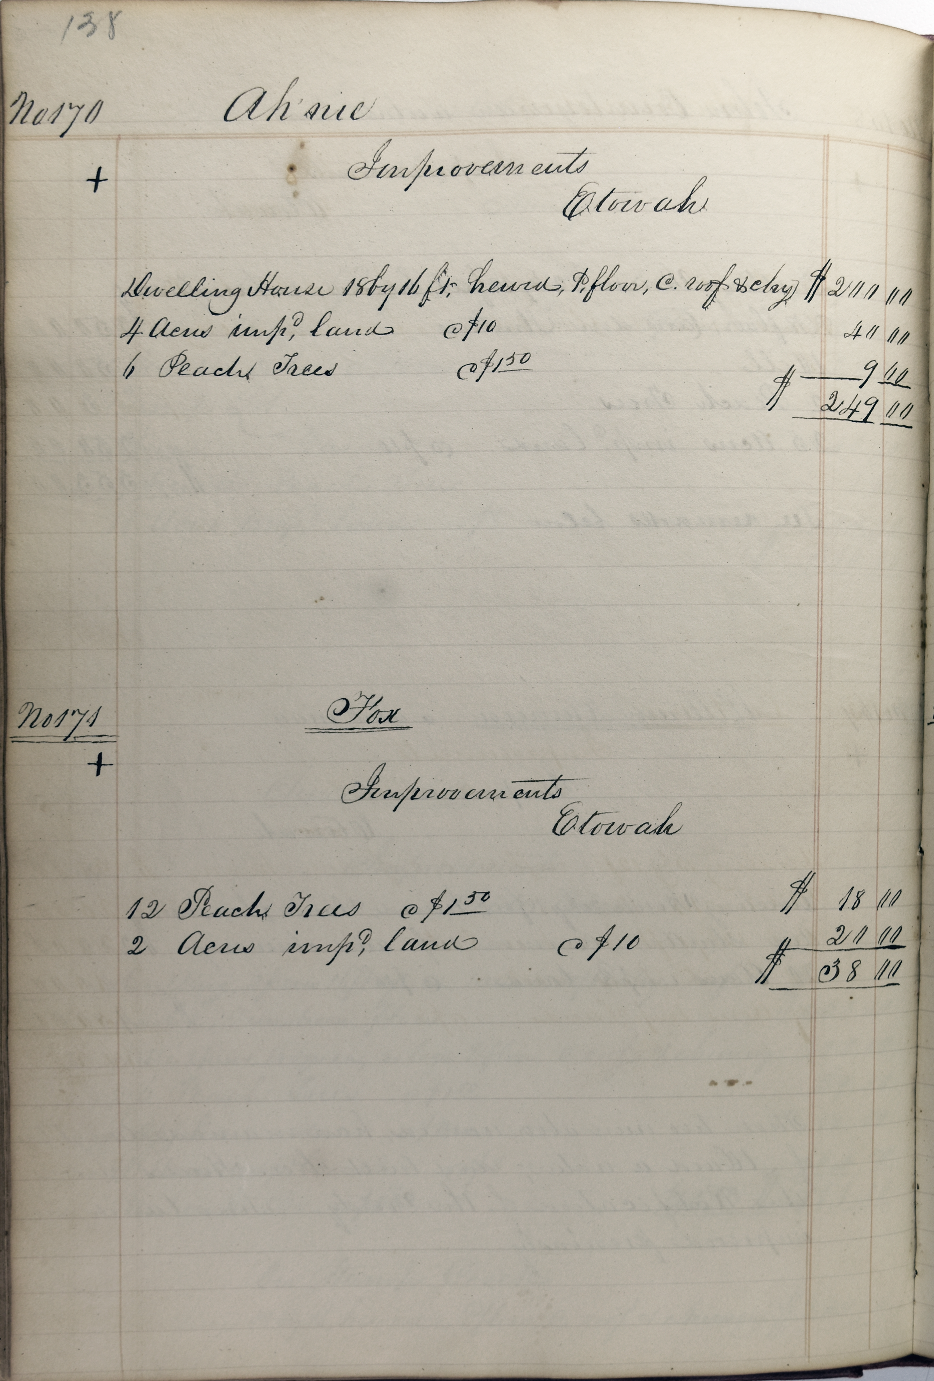 138
No 170 Ah'nie
+ Improvements
Etowah
Dwelling House 18 by 16 ft. hewed, P. floor, C. roof & chy $ 200 00
4 Acres imp.d land @ $10 40 00
6 Peach Trees @ $1 50 9 00
$ 249 00
No 171 Fox
+ Improvements
Etowah
12 Peach Trees @ $1 50 $ 18 00
2 Acres imp.d land @ $10 20 00
$ 38 00